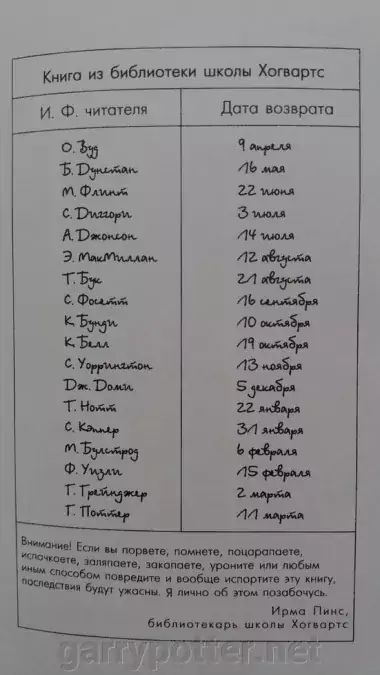 Книга из библиотеки школы Хогвартс
И. Ф. читателя Дата возврата
О. Вуд 9 апреля
Б. Дунстан 16 мая
М. Флинт 22 июня
С. Диггори 3 июля
А. Джонсон 14 июля
Э. МакМиллан 12 августа
Т. Бут 21 августа
С. Фосетт 16 сентября
К. Бунди 10 октября
К. Белл 19 октября
С. Уоррингтон 13 ноября
Дж. Доми 5 декабря
Т. Нотт 22 января
С. Кэппер 31 января
М. Булстрод 6 февраля
Ф. Уизли 15 февраля
Г. Грейнджер 2 марта
Г. Поттер 11 марта
Внимание! Если вы порвете, помнете, поцарапаете,
испачкаете, заляпаете, закапаете, уроните или любым
иным способом повредите и вообще испортите эту книгу,
последствия будут ужасны. Я лично об этом позабочусь.
Ирма Пинс,
библиотекарь школы Хогвартс
garrypotter.net